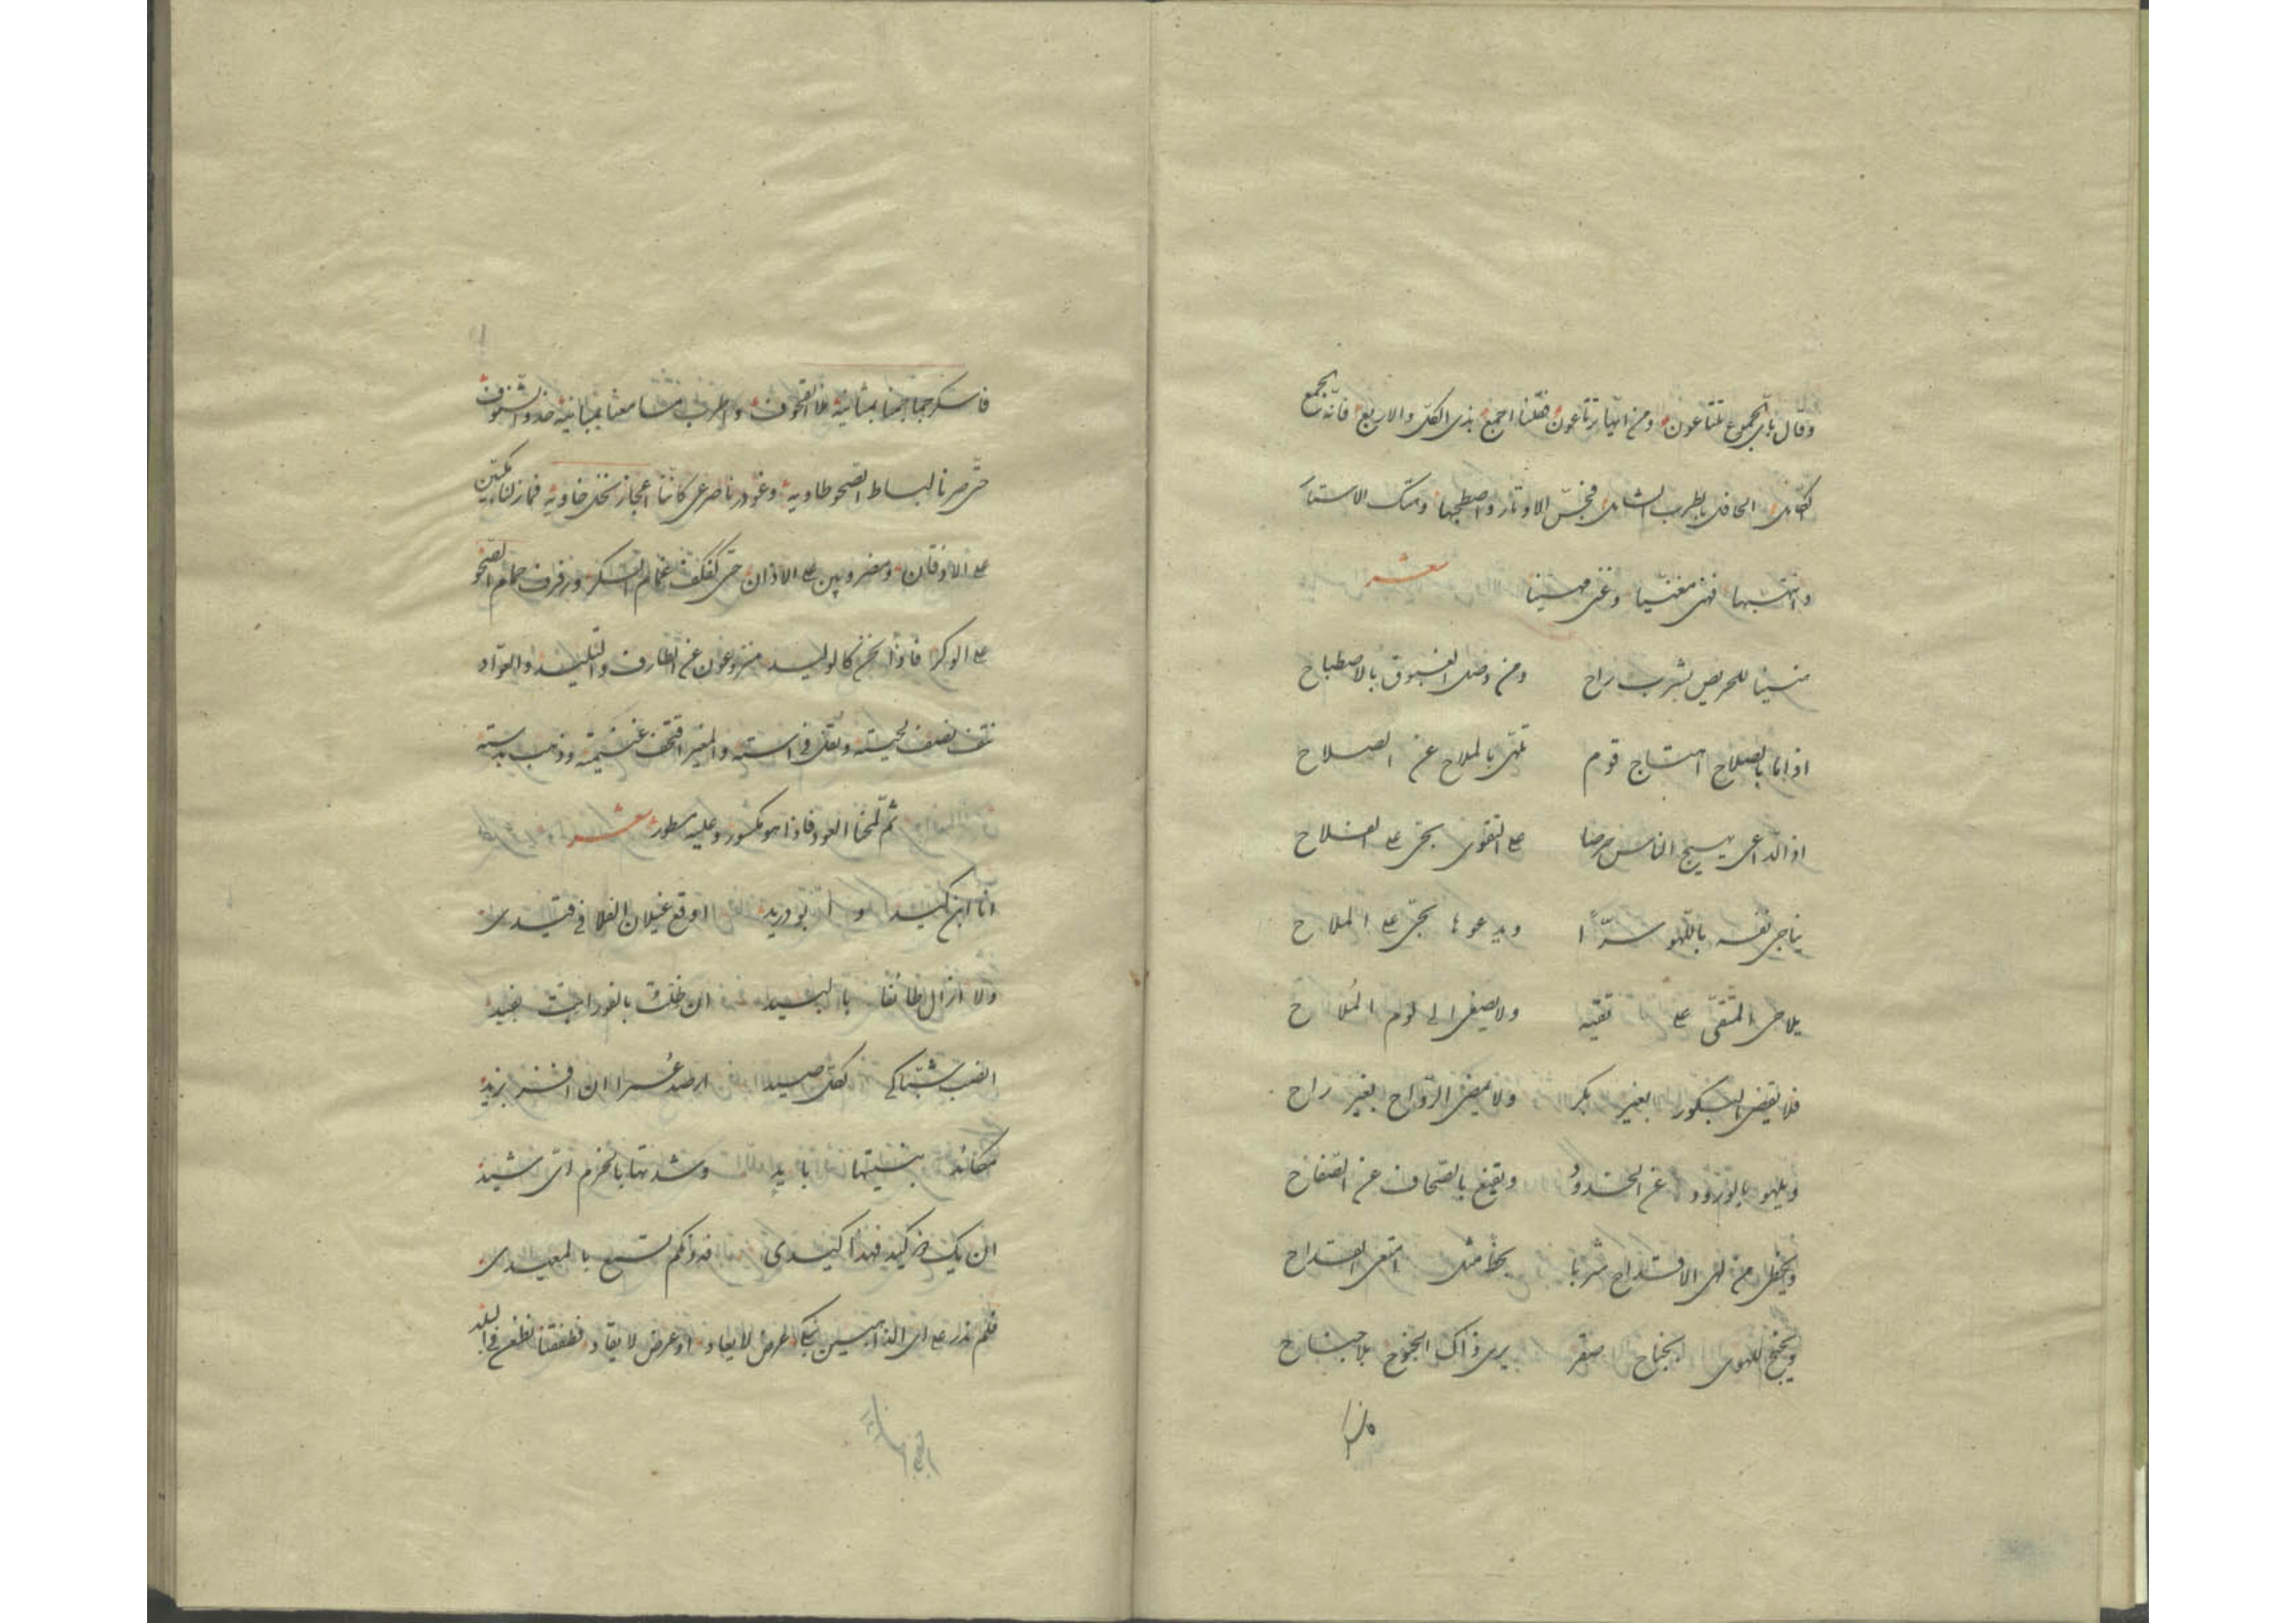 وقال بأيّ الجموع تلتاعون ومن ايّها ترتاعون فقلنا اجمع بذي الكلّ والاربع فانّه الجمع
الكامل الحافل بالطرب الشامل فجسّ الاوتار واصطحبها وهتك الاستار
وانتهبها فهنى مغنّيا وغنى مهنيّا شعر
هنيئا للحريص بشرب راح ومن وصل الغبوق بالاصطباح
اذا ما بالصلاح اهتاج قوم تلهى بالملاح عن الصلاح
اذا الداعى يهيج الناس حرصا على التقوى بحيّ على الفلاح
يناجى نفسه باللهو سرّا ويدعوها بحيّ على الملاح
يلاحى المتّقى على تقيه ولا يصغى الى لوم الملاح
فلا يقضى البكور بغير بكر ولا يمضى الرواح بغير راح
ويلهو بالورود عن الخدود ويقنع بالصحاف عن الصفاح
ويحظى من لهى الاقداح شربا بحظ مثل القداح
ويجنح للهوى الجناح صقر يرى ذاك الجنوح بلا جناح
فاسكر جماجمنا بمثانيه القحوف واطرب مسامعنا ببنانيه الشنوف
حتّى صرنا لبساط الصحو طاوية وغودرنا صرعى كانّنا اعجاز نخل خاوية فمازلنا مكبّين
على الاذقان ومضروبين على الاذان حتى غمام السكر ورفرف حمام الصحو
على الوكر فاذا نحن كالوليد منزوعون عن الطارف والتليد والعوّاد
نتف نصف لحيته وتفل فى استه والمغيّر اقتحف غنيمته وذهب بدسته
ثمّ لمحنا العود فاذا هو مكسور وعليه سطور شعر
انا ابن كيد و ابو دريد اوقع غيلان الفلا فى قيدى
ولا ازال طائفا بالبيد ان ظلت بالغور بجيد
انصب شباكى لكل صيد ارصد عمرا ان افتر بزيد
مكائد بنيتها بايد وشدتها بالحزم اىّ شيد
ان يك كيد فهذا كيدى فدونكم تسمع بالمعيدى
فلم ندر على اى الذاهبين نبكى عرض لا يعاد او عرض لا يقاد فطفقنا نطعن فى البلد